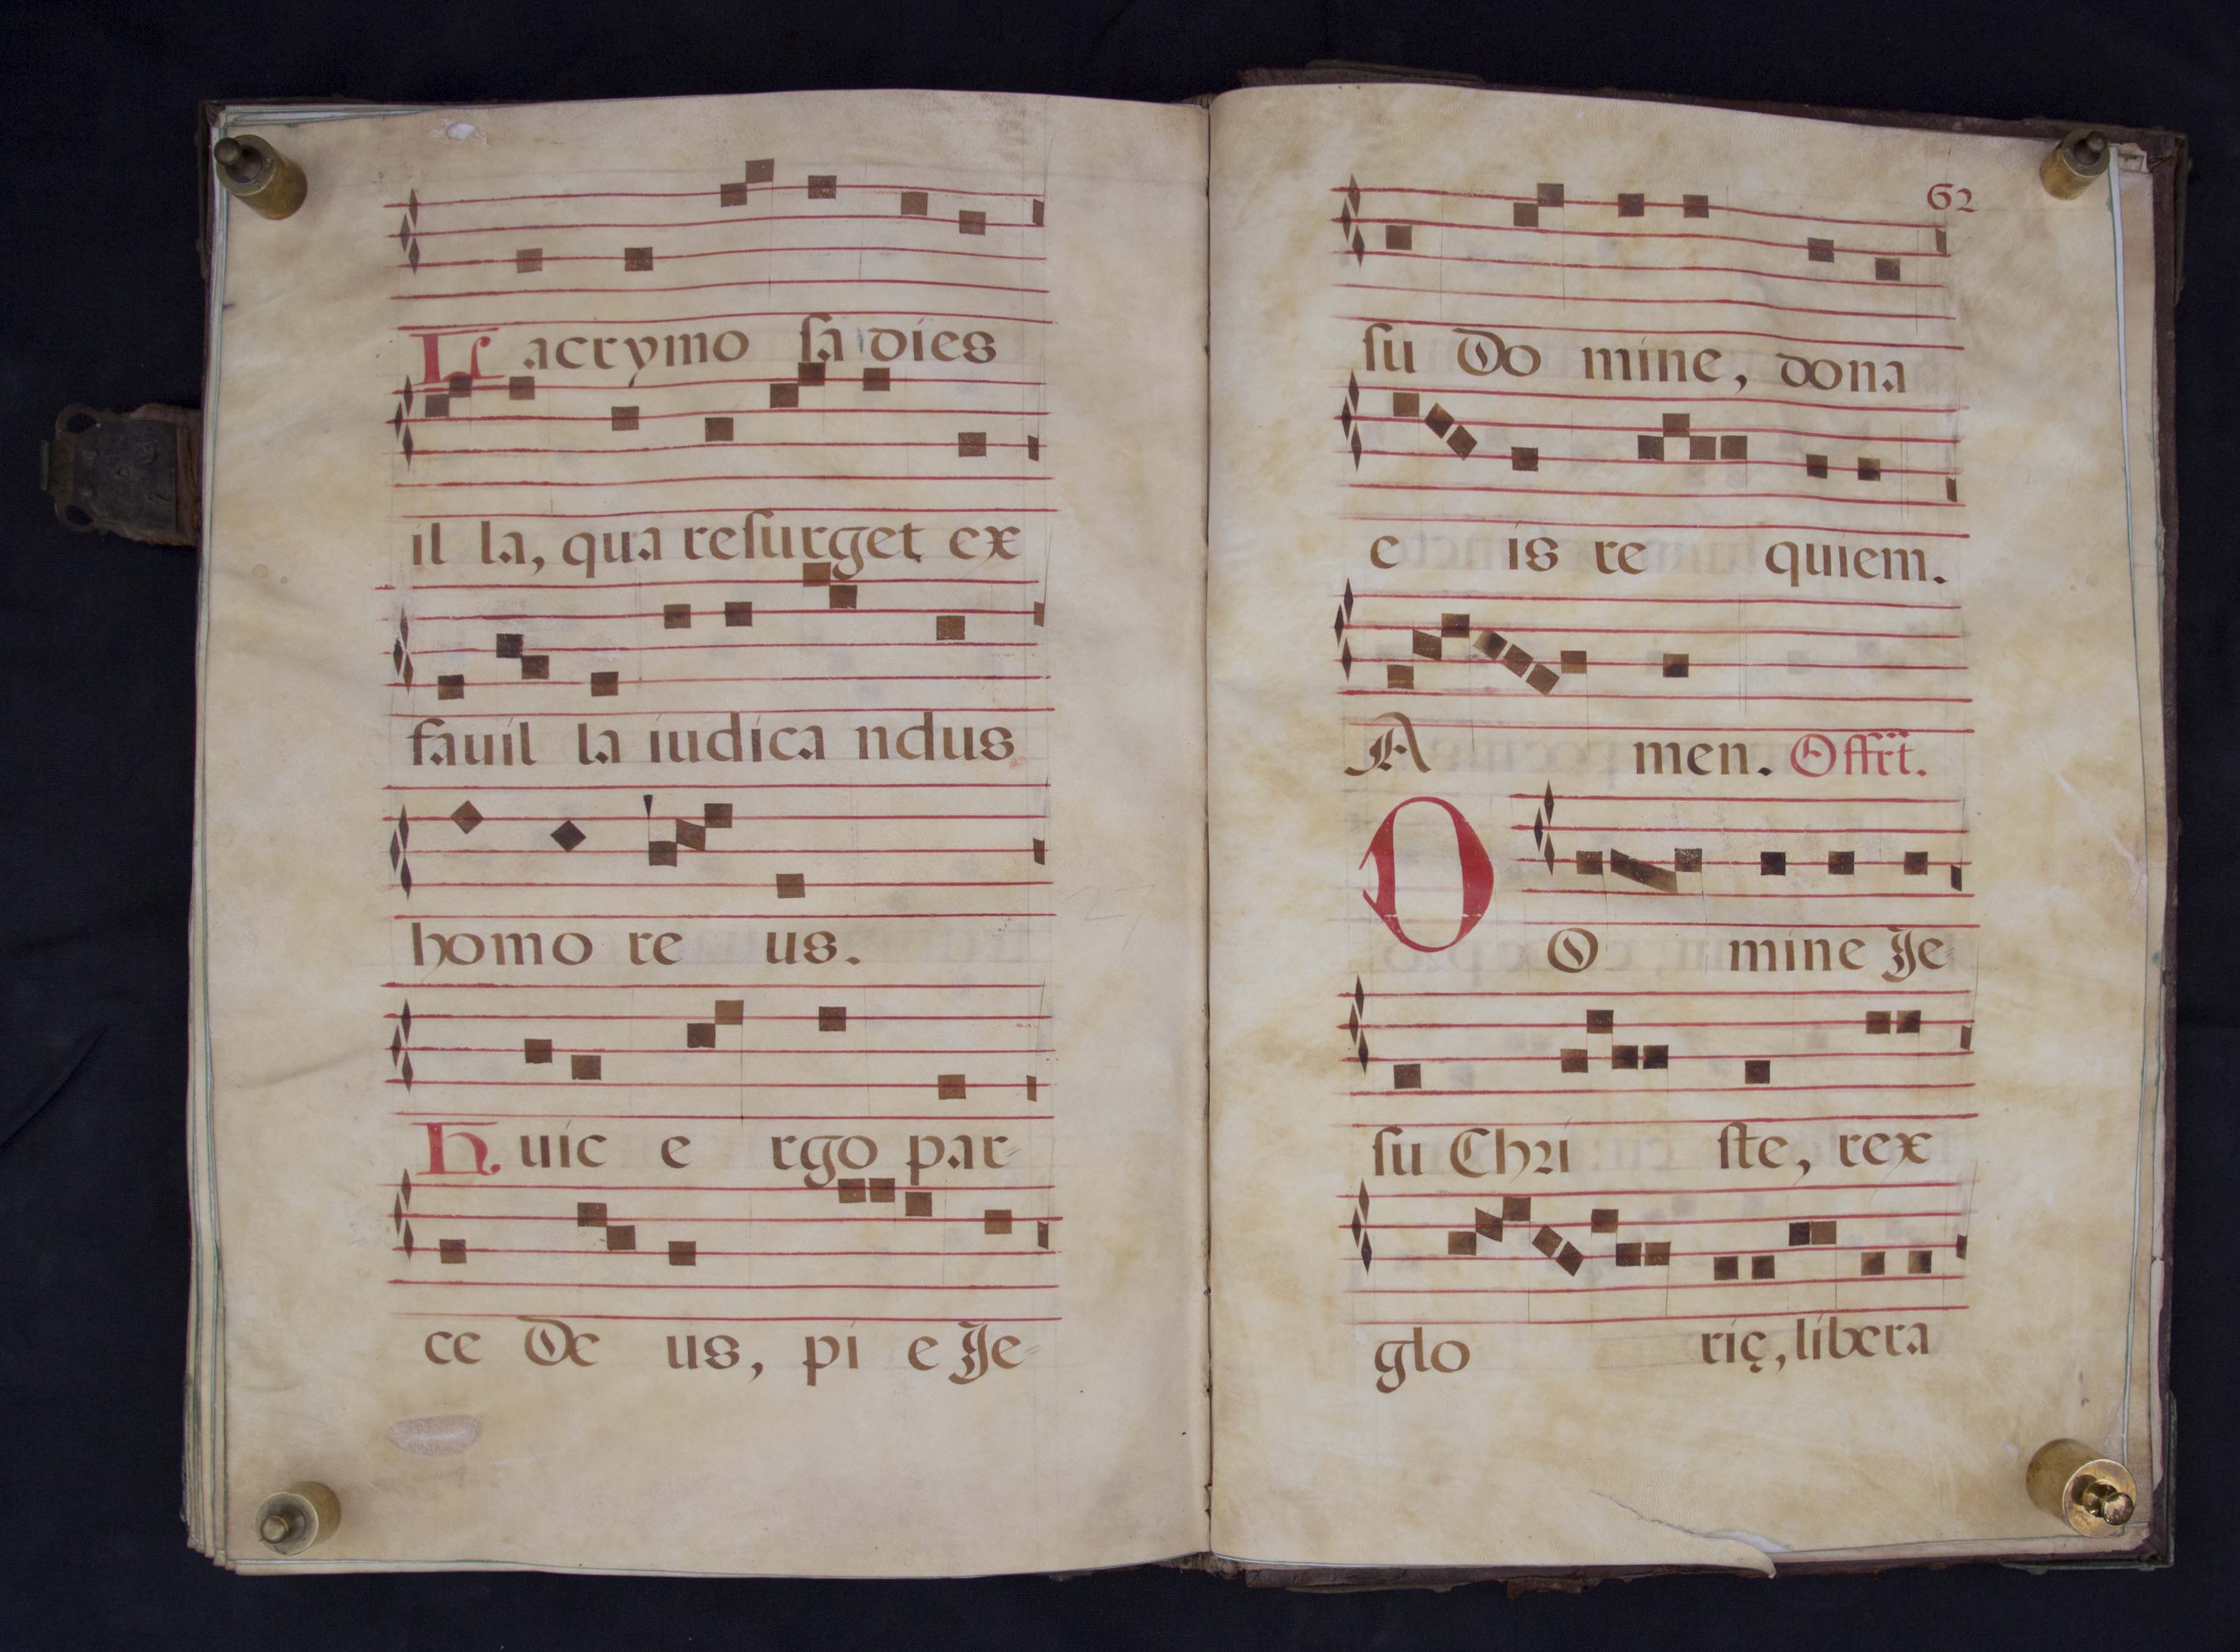 Lacrymo sa dies
il la, qua resurget ex
fauil la iudica ndus
homo re us.
Huic e rgo par-
ce De us, pi e Je-
62
su Do mine, dona
e is re quiem.
A men. Offrt.
DO mine Je-
su Chri ste, rex
glo rię, libera